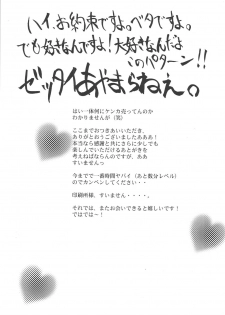 ハイ。お約束ですよ。ベタですよ。
でも好きなんですよ!大好きなんだよ
このパターン!!
ゼッタイあやまらねぇ。
はい一体何にケンカ売ってんのか
わかりませんが(笑)
ここまでおつきあいいただき、
ありがとうございましたあああ!
本当なら感謝と共にさらに少しでも
楽しんでいただけるあとがきを
考えねばならんのですが、ああ
すいません・・・
今までで一番時間ヤバイ(あと数分レベル)
のでカンベンしてください・・・
印刷所様、すいません・・・・。
それでは、またお会いできると嬉しいです!
ではでは~!